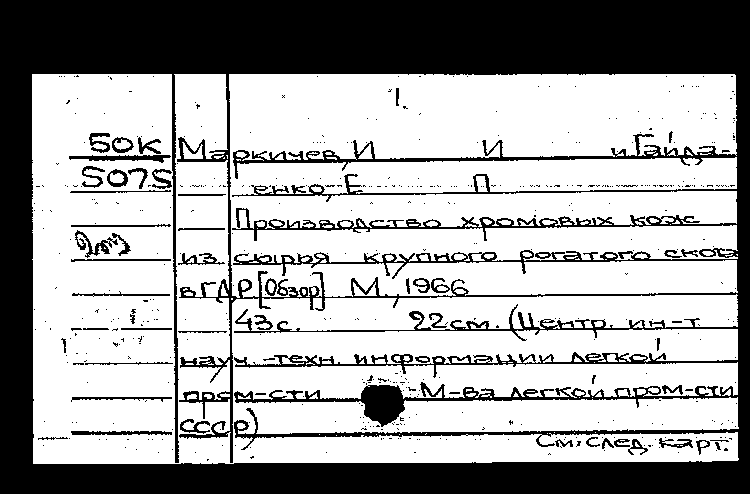 1.
50К Маркичев, И И и Гайда-
5075 енко, Е П
Производство хромовых кож
из сырья крупного рогатого скота
в ГДР [Обзор] М., 1966
43 с. 22 см. (Центр. ин-т
науч.-техн. информации легкой
пром-сти М-ва легкой пром-сти
СССР)
См. след. карт.